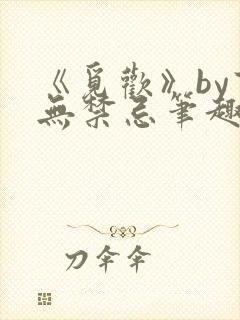 《覓歡》by
無禁忌筆趣
刀伞伞